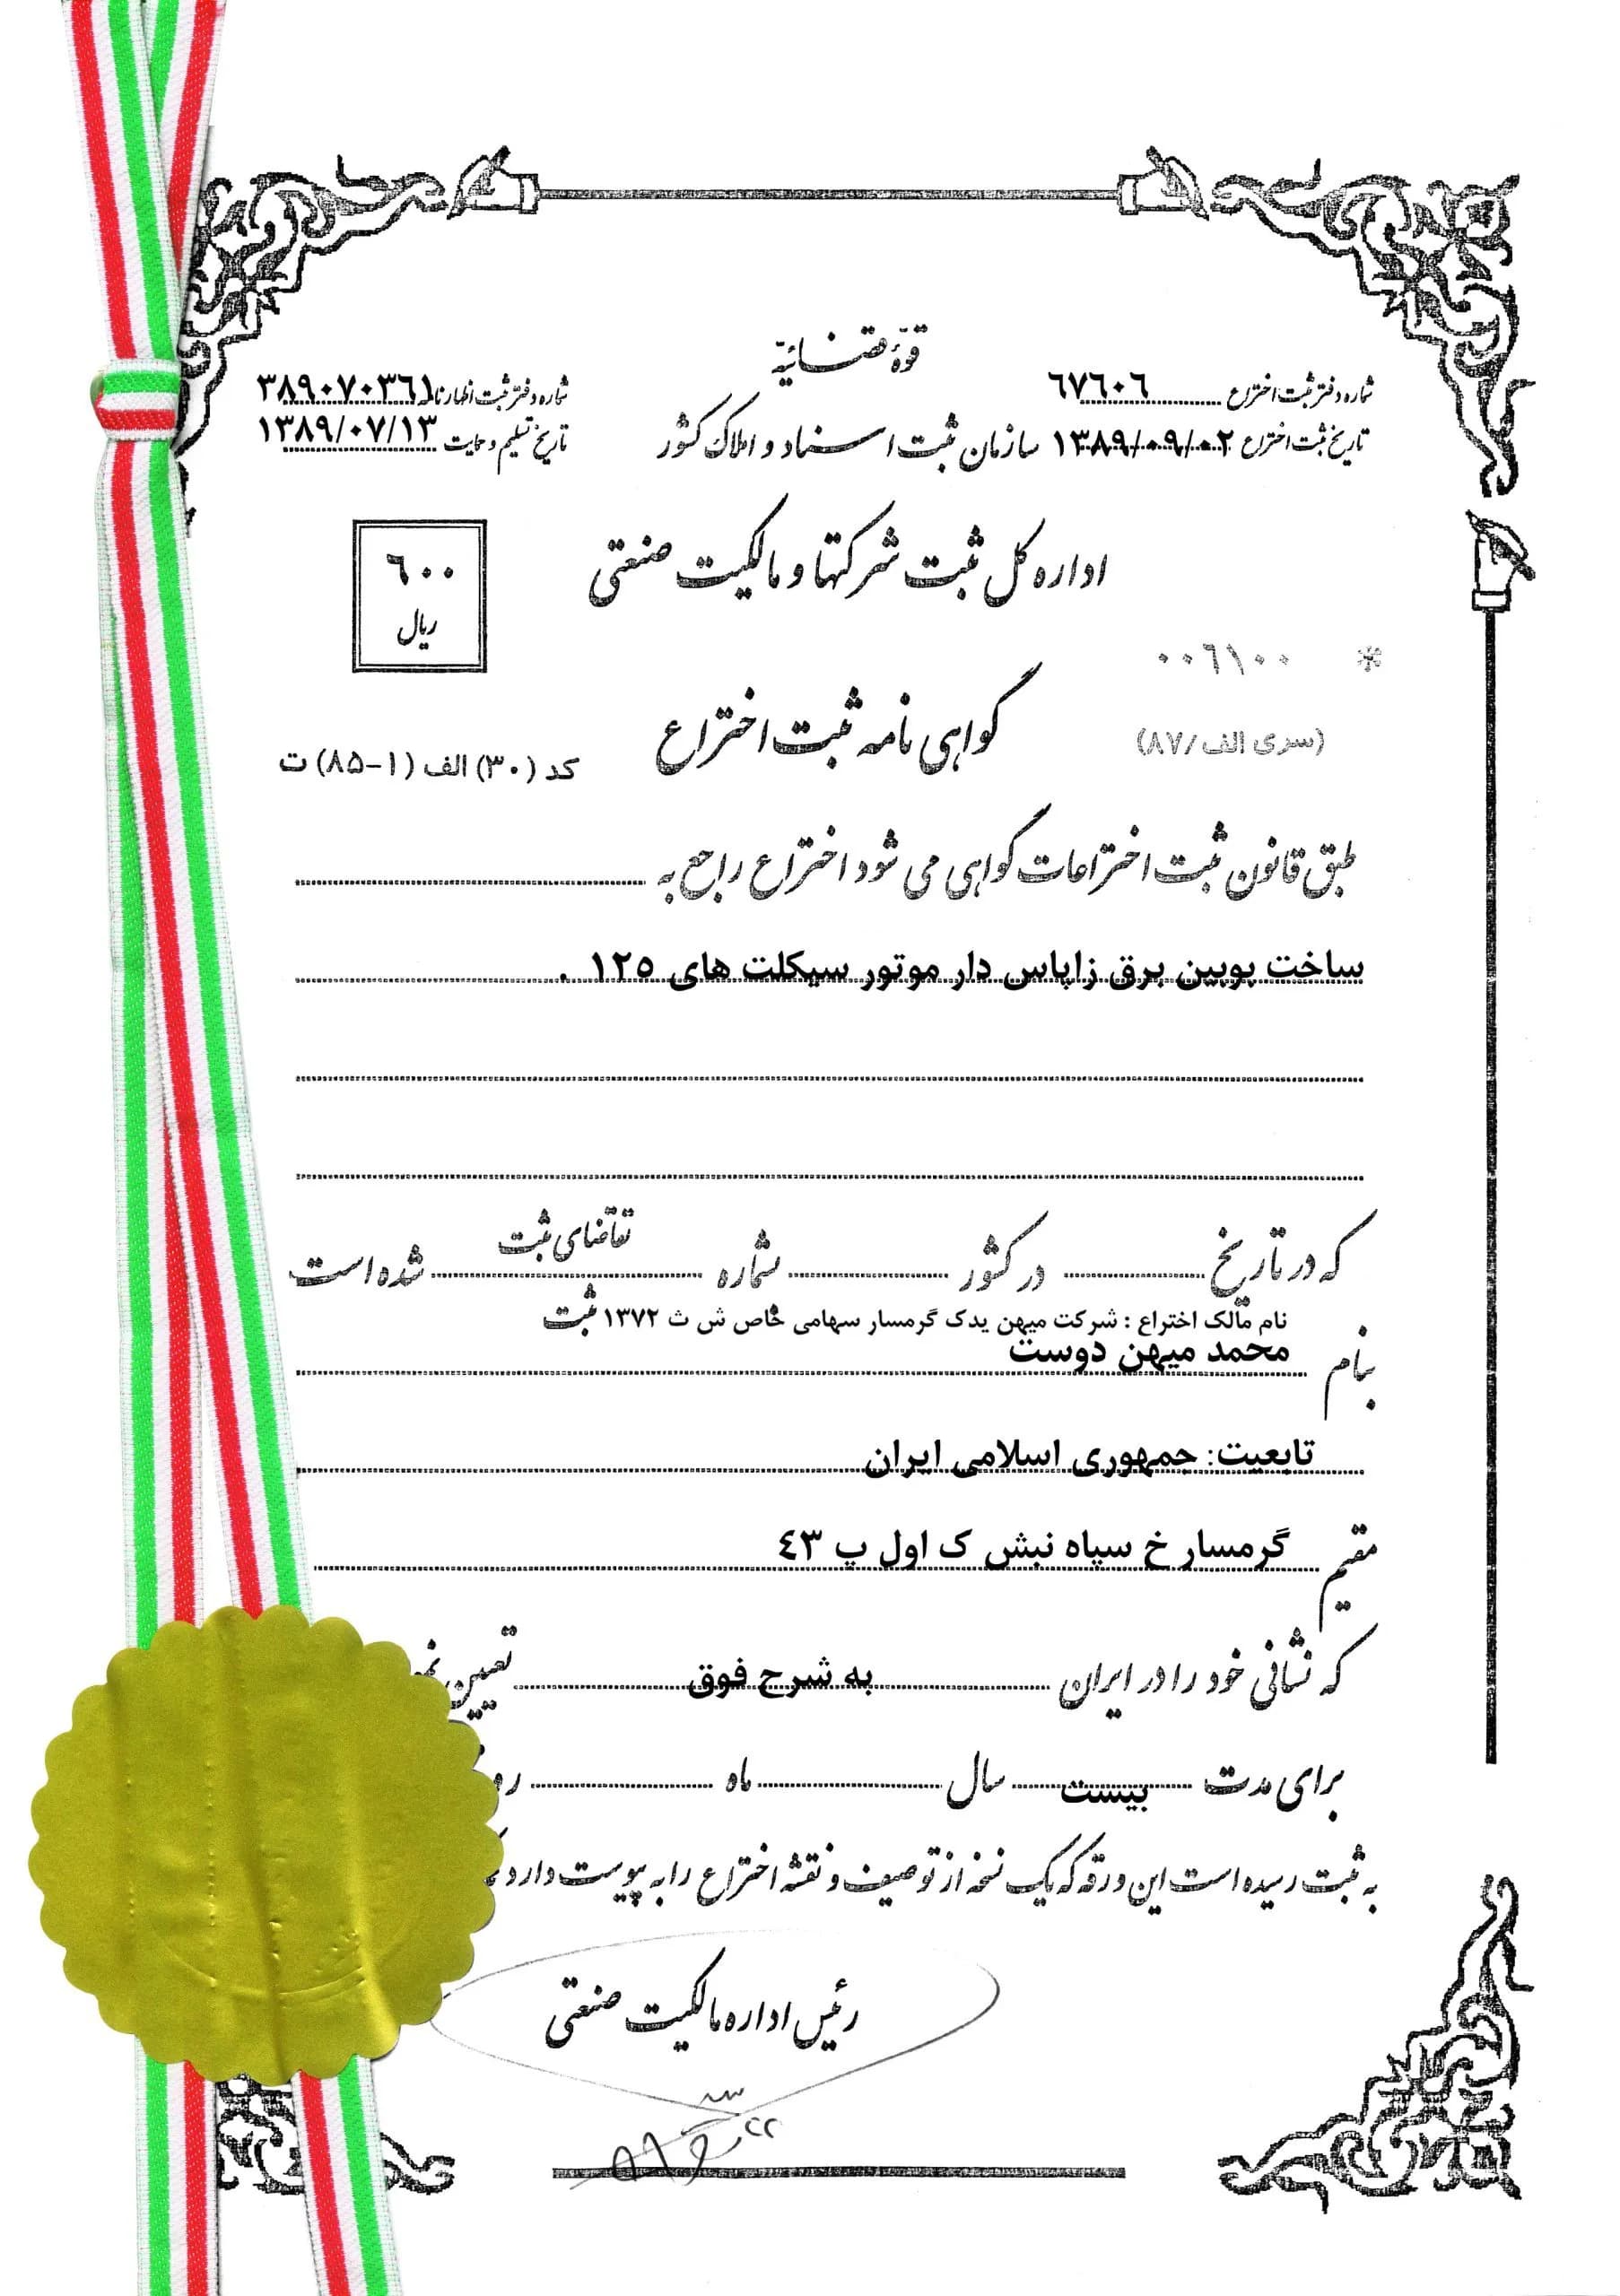 قوّهٔ قضائیّه
شماره دفتر ثبت اختراع ٦٧٦٠٦
شماره دفتر ثبت اظهارنا ٣٨٩٠٧٠٣٦١
تاریخ ثبت اختراع ١٣٨٩/٠٩/٠٢
سازمان ثبت اسناد و املاک کشور
تاریخ تسلیم و حمایت ١٣٨٩/٠٧/١٣
اداره کل ثبت شرکتها و مالکیت صنعتی
٦٠٠
ریال
* ٠٠٦١٠٠
(سری الف/٨٧)
گواهی نامه ثبت اختراع
کد (٣٠) الف (١-٨۵) ت
طبق قانون ثبت اختراعات گواهی می شود اختراع راجع به
ساخت بوبین برق زاپاس دار موتور سیکلت های ١٢٥ .
که در تاریخ در کشور بشماره تقاضای ثبت شده است
نام مالک اختراع : شرکت میهن یدک گرمسار سهامی خاص ش ث ١٣٧٢ ثبت
بنام محمد میهن دوست
تابعیت: جمهوری اسلامی ایران
مقیم گرمسار خ سپاه نبش ک اول پ ٤٣
که نشانی خود را در ایران به شرح فوق تعیین
برای مدت بیست سال ماه
به ثبت رسیده است این ورقه که یک نسخه از توصیف و نقشه اختراع را به پیوست دارد
رئیس اداره مالکیت صنعتی